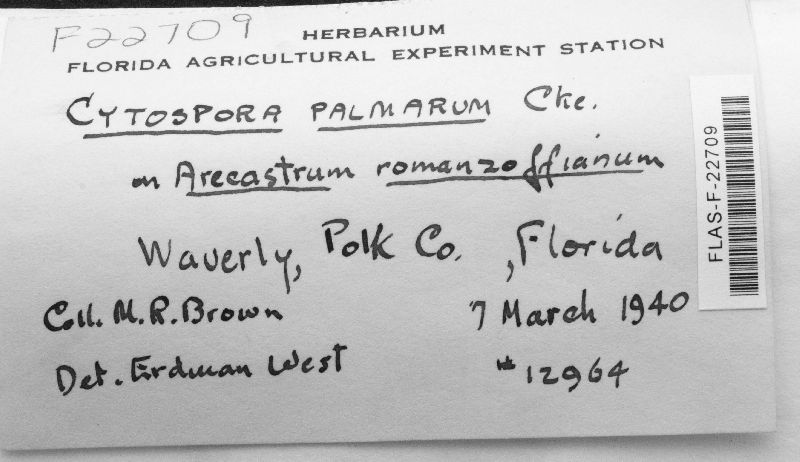 F22709
HERBARIUM
FLORIDA AGRICULTURAL EXPERIMENT STATION
CYTOSPORA PALMARUM Cke.
on Arecastrum romanzoffianum
Waverly, Polk Co., Florida
Coll. M.R. Brown 7 March 1940
Det. Erdman West #12964
FLAS-F-22709